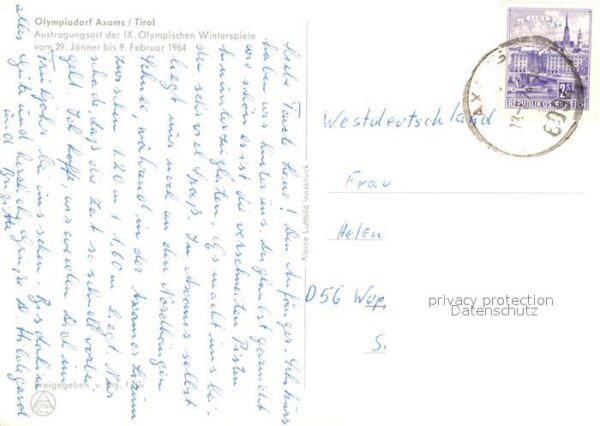 Olympiadorf Axams / Tirol
Austragungsort der IX. Olympischen Winterspiele
vom 29. Jänner bis 9. Februar 1964
Liebe Tante Lene! Den Anfänger-Schikurs
haben wir hinter uns. Du glaubst gar nicht
wie schön es ist die verschneiten Pisten
hinunterzugleiten. Es macht uns bei-
den sehr viel Spaß. In Axams selbst
liegt nur noch an den Nordhängen
Schnee, während in der Axamer Lizum
zwischen 1.20 m + 1,60 m liegt. Nur
schade, daß die Zeit so schnell vorbei
geht. Ich hoffe, wir werden Dich im
Frühjahr bei uns sehen. Bis dahin
alles Gute und herzliche Grüße D. Hildegard
und Brigitte
Alpine Luftbild Innsbruck
Westdeutschland
Frau
Helen
D56 Wup.
S.
privacy protection
Datenschutz
REPUBLIK ÖSTERREICH
AXAMS